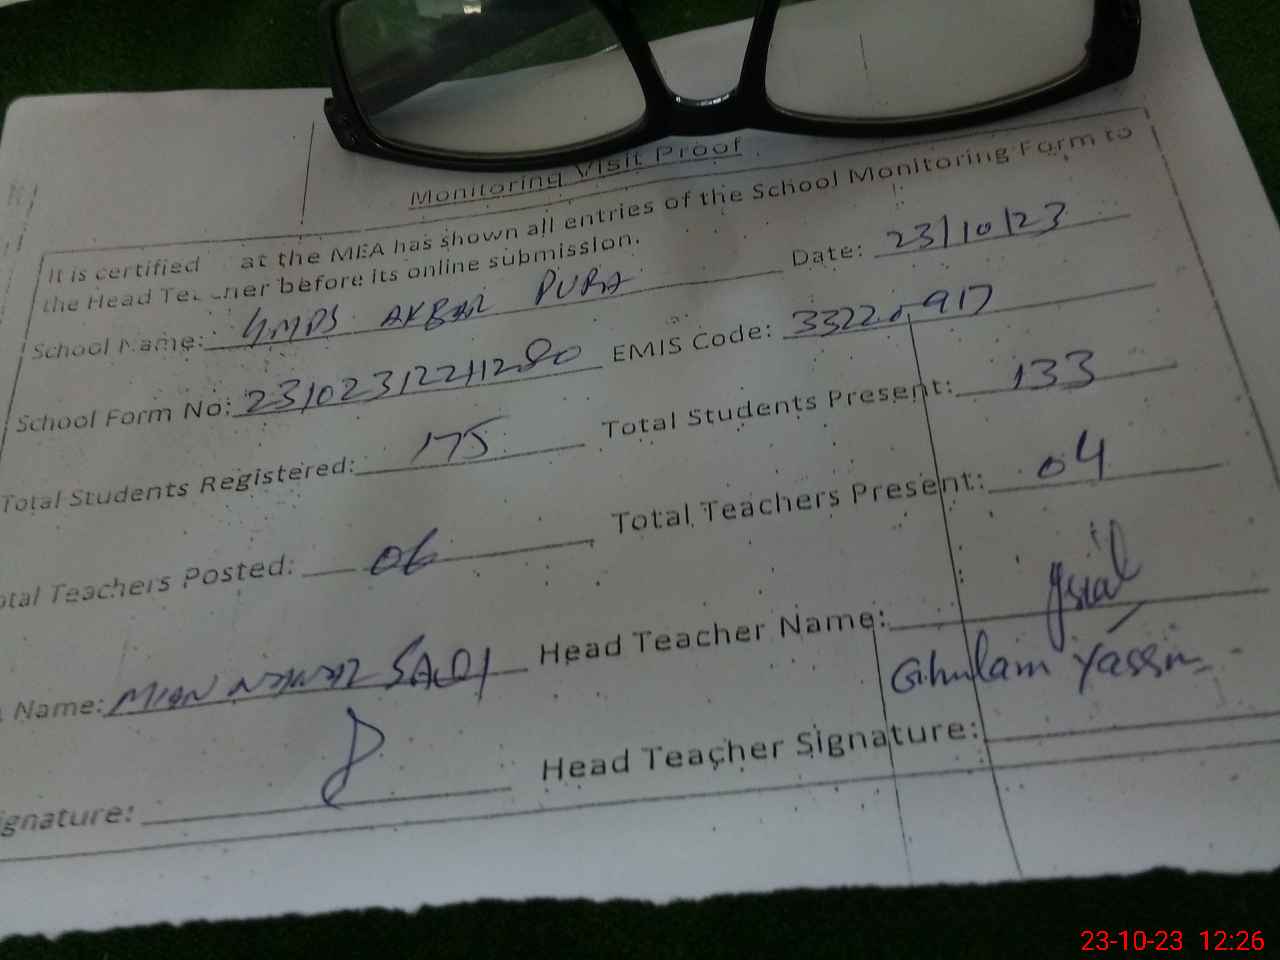 Monitoring Visit Proof
It is certified at the MEA has shown all entries of the School Monitoring Form to
the Head Teacher before its online submission.
Date: 23/10/23
School Name: GMPS AKBAR PURA
School Form No: 231023122411280 EMIS Code: 33220917
Total Students Registered: 175 Total Students Present: 133
Total Teachers Posted: 06 Total Teachers Present: 04
Name: MIAN SAQI Head Teacher Name:
Ghulam Yassin
ignature: Head Teacher Signature:
23-10-23 12:26